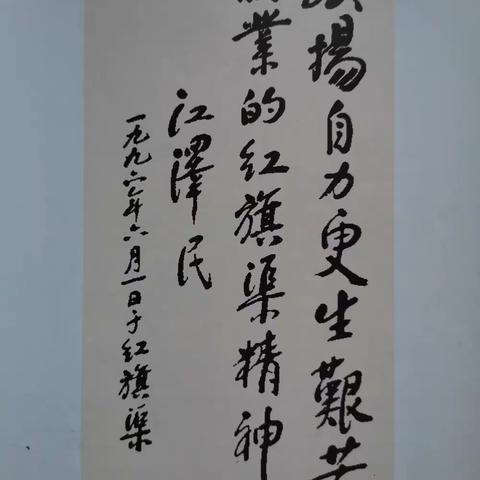 揚自力更生艱苦
業的红旗渠精神
江澤民
一九九六年六月一日于红旗渠